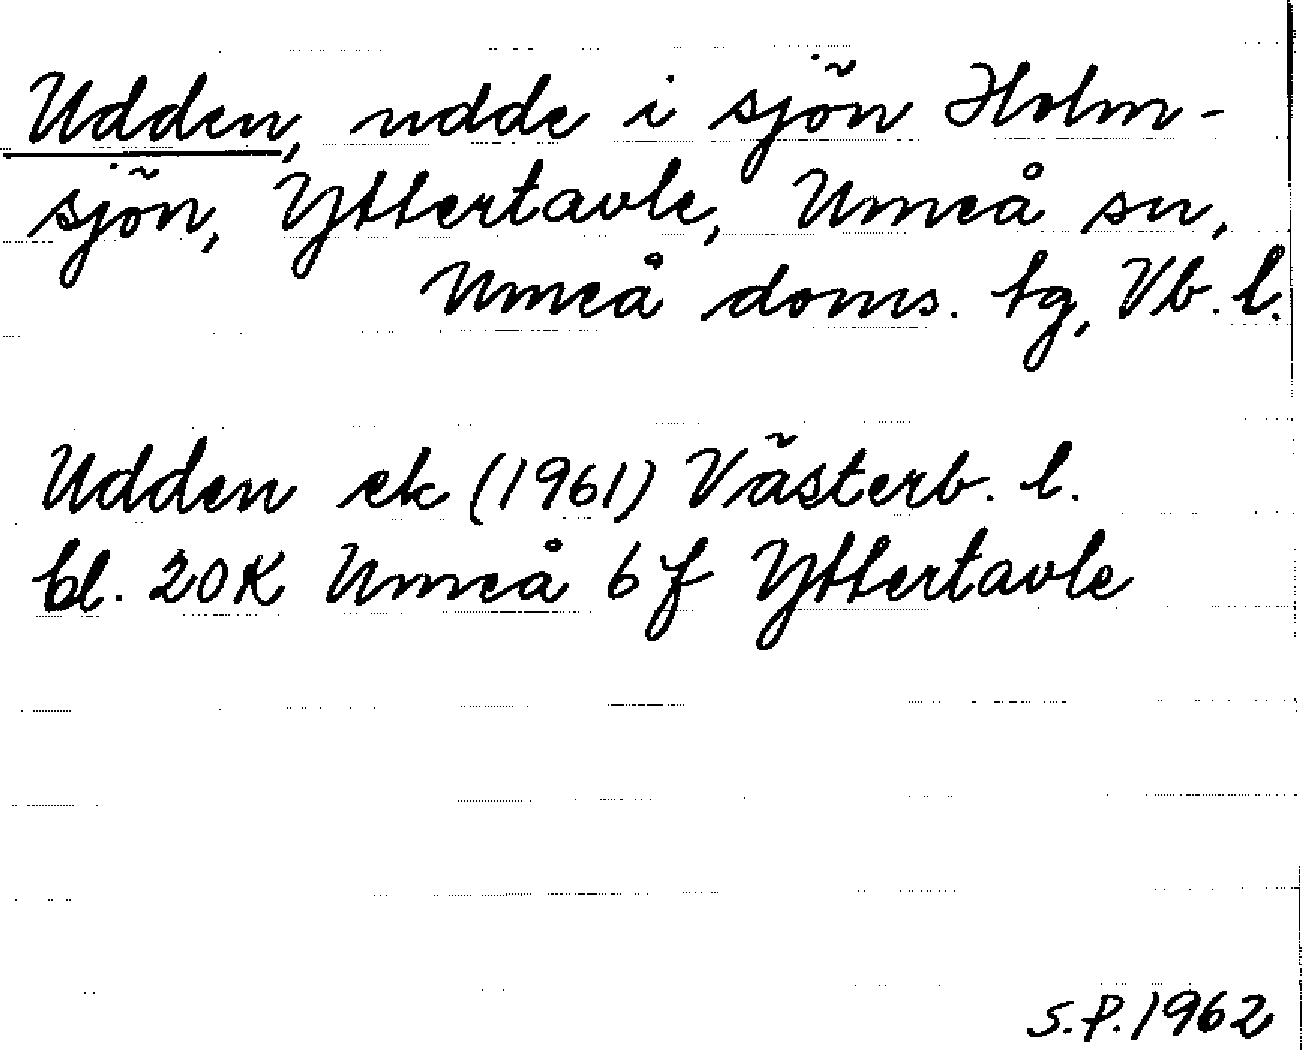 Udden, udde i sjön Holm-
sjön, Yttertavle, Umeå sn,
Umeå doms. tg, Vb. l.
Udden ek (1961) Västerb. l.
bl. 20K Umeå 6f Yttertavle
S.P. 1962